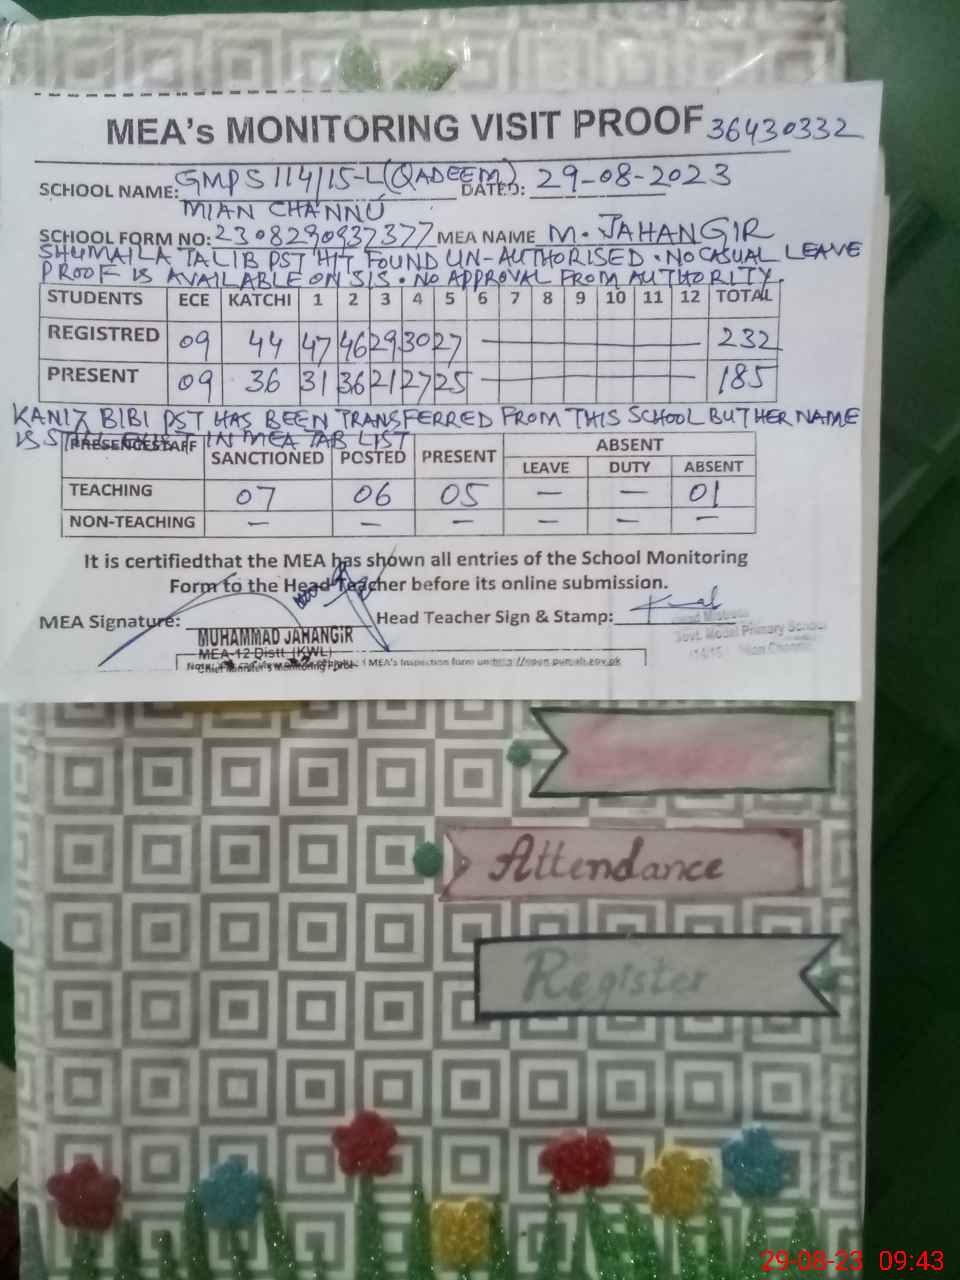 MEA's MONITORING VISIT PROOF 36430332
SCHOOL NAME: GMPS 114/15-L (QADEEM) DATED: 29-08-2023
MIAN CHANNU
SCHOOL FORM NO: 230829093737 MEA NAME M. JAHANGIR
SHUMAILA TALIB PST HIT FOUND UN-AUTHORISED. NO CASUAL LEAVE
PROOF IS AVAILABLE ON SIS. NO APPROVAL FROM AUTHORITY.
STUDENTS ECE KATCHI 1 2 3 4 5 6 7 8 9 10 11 12 TOTAL
REGISTRED 09 44 47 46 29 30 27 232
PRESENT 09 36 31 36 21 27 25 185
KANIZ BIBI PST HAS BEEN TRANSFERRED FROM THIS SCHOOL BUT HER NAME
IS IN MEA TAB LIST
PRESENCE STAFF SANCTIONED POSTED PRESENT ABSENT
LEAVE DUTY ABSENT
TEACHING 07 06 05 — — 01
NON-TEACHING — — — — — —
It is certifiedthat the MEA has shown all entries of the School Monitoring
Form to the Head Teacher before its online submission.
MEA Signature: Head Teacher Sign & Stamp:
MUHAMMAD JAHANGIR
MEA-12 Distt (KWL)
Govt. Model Primary School
MEA's Inspection form on http://open.punjab.gov.pk
Attendance
Register
29-08-23 09:43